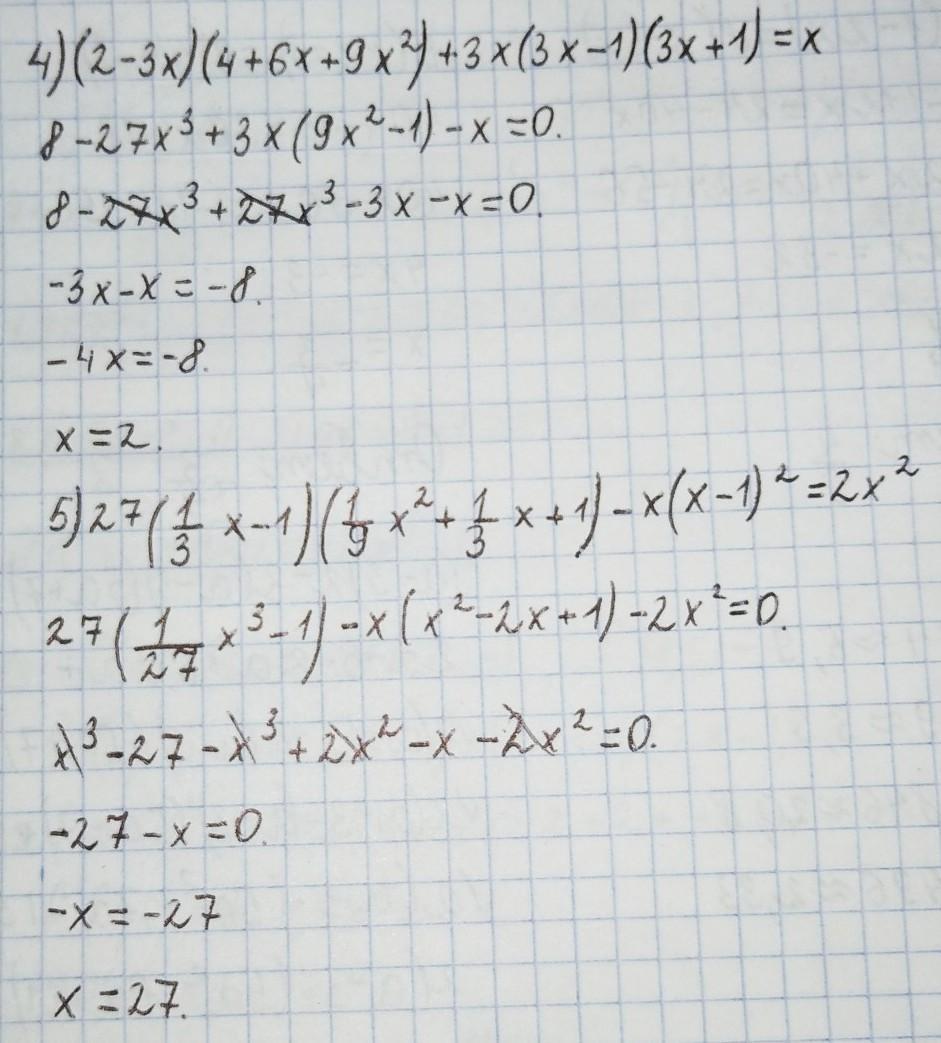 4) (2-3x)(4+6x+9x²)+3x(3x-1)(3x+1)=x
8-27x³+3x(9x²-1)-x=0.
8-27x³+27x³-3x-x=0.
-3x-x=-8.
-4x=-8.
x=2.
5) 27(1/3 x-1)(1/9 x²+1/3 x+1)-x(x-1)²=2x²
27(1/27 x³-1)-x(x²-2x+1)-2x²=0.
x³-27-x³+2x²-x-2x²=0.
-27-x=0.
-x=-27
x=27.